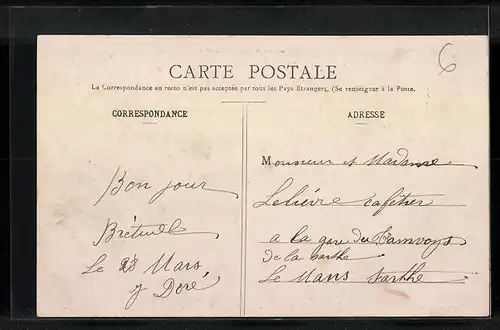 6
CARTE POSTALE
La Correspondance au recto n'est pas acceptée par tous les Pays Etrangers, (Se renseigner à la Poste.
CORRESPONDANCE
ADRESSE
Bon jour
le 23 Mars
Doré
Monsieur et Madame
Lelièvre cafetier
a la gare du Tamvoys
de la Sarthe
Le Mans Sarthe